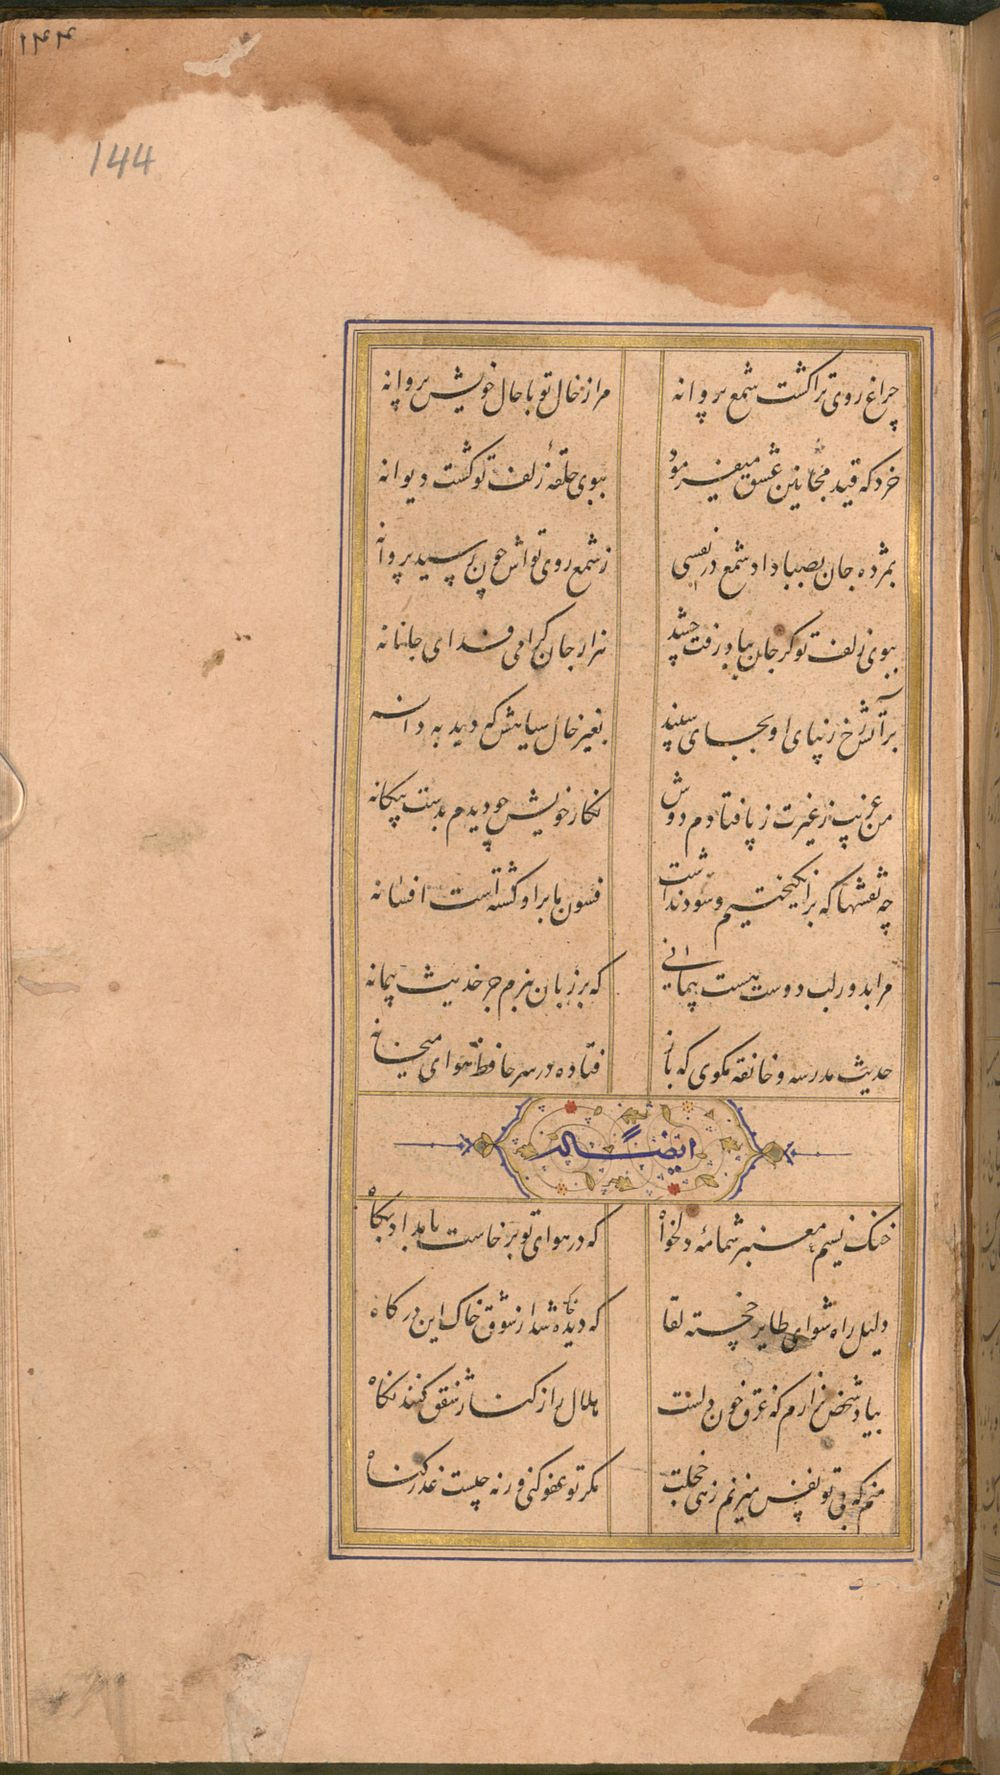 ۱۴۴
144
چراغ روی ترا گشت شمع پروانه
مرا ز خال تو با حال خویش پروانه
خرد که قید مجانین عشق میفرمود
ببوی حلقهٔ زلف تو گشت دیوانه
بمژده جان بصبا داد شمع در نفسی
ز شمع روی تواش چون رسید پروانه
ببوی زلف تو گر جان بباد رفت چه شد
هزار جان گرامی فدای جانانه
بر آتش رخ زیبای او بجای سپند
بغیر خال سیاهش که دید به دانه
من غریب ز غیرت ز پا فتادم دوش
نگار خویش چو دیدم بدست بیگانه
چه نقشها که برانگیختیم و سود نداشت
فسون ما بر او گشته است افسانه
مرا بدور لب دوست هست پیمانی
که بر زبان نبرم جز حدیث پیمانه
حدیث مدرسه و خانقه مگوی که باز
فتاده در سر حافظ هوای میخانه
ایضاً له
خنک نسیم معنبر شمامهٔ دلخواه
که در هوای تو برخاست بامداد پگاه
دلیل راه شو ای طایر خجسته لقا
که دیده شد از شوق خاک این درگاه
بیاد شخص نزارم که غرق خون دلست
هلال را ز کنار شفق کنند نگاه
منم که بی تو نفس میزنم زهی خجلت
مگر تو عفو کنی ورنه چیست عذر گناه